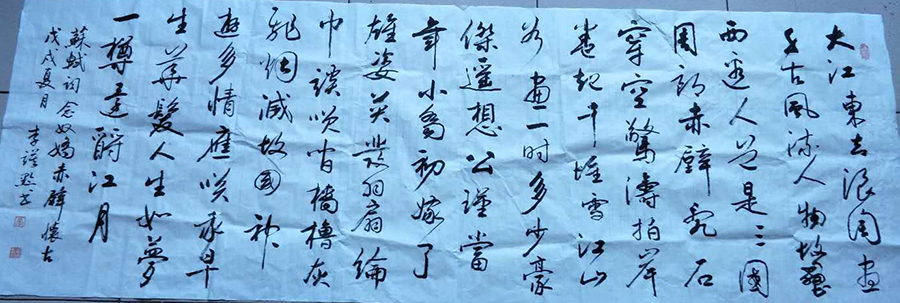 大江東去浪淘盡
千古風流人物故壘
西邊人道是三國
周郎赤壁亂石
穿空驚濤拍岸
卷起千堆雪江山
如畫一時多少豪
傑遥想公瑾當
年小喬初嫁了
雄姿英發羽扇綸
巾談笑間檣櫓灰
飛烟滅故國神
遊多情應笑我早
生華髮人生如夢
一樽還酹江月
蘇軾詞念奴嬌赤壁懷古
戊戌夏月 李